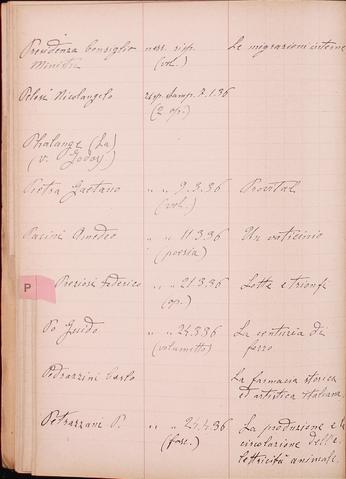 Presidenza Consiglio ness. risp. Le migrazioni interne
Ministri (vol.)
Pelosi Nicolangelo risp. stamp. 2.1.36
(2 op.)
Phalange (La)
(v. Godoy)
Pietra Gaetano " " 9.3.36 Provital
(vol.)
Pacini Amedeo " " 11.3.36 Un vaticinio
(poesia)
P
Preziosi Federico " " 21.3.36 Lotte e trionfi
(op.)
Po Guido " " 24.3.36 La centuria di
(volumetto) ferro
Pedrazzini Carlo La farmacia storica
ed artistica italiana
Petrazzani P. " " 24.4.36 La produzione e la
(fasc.) circolazione della
elettricità animale